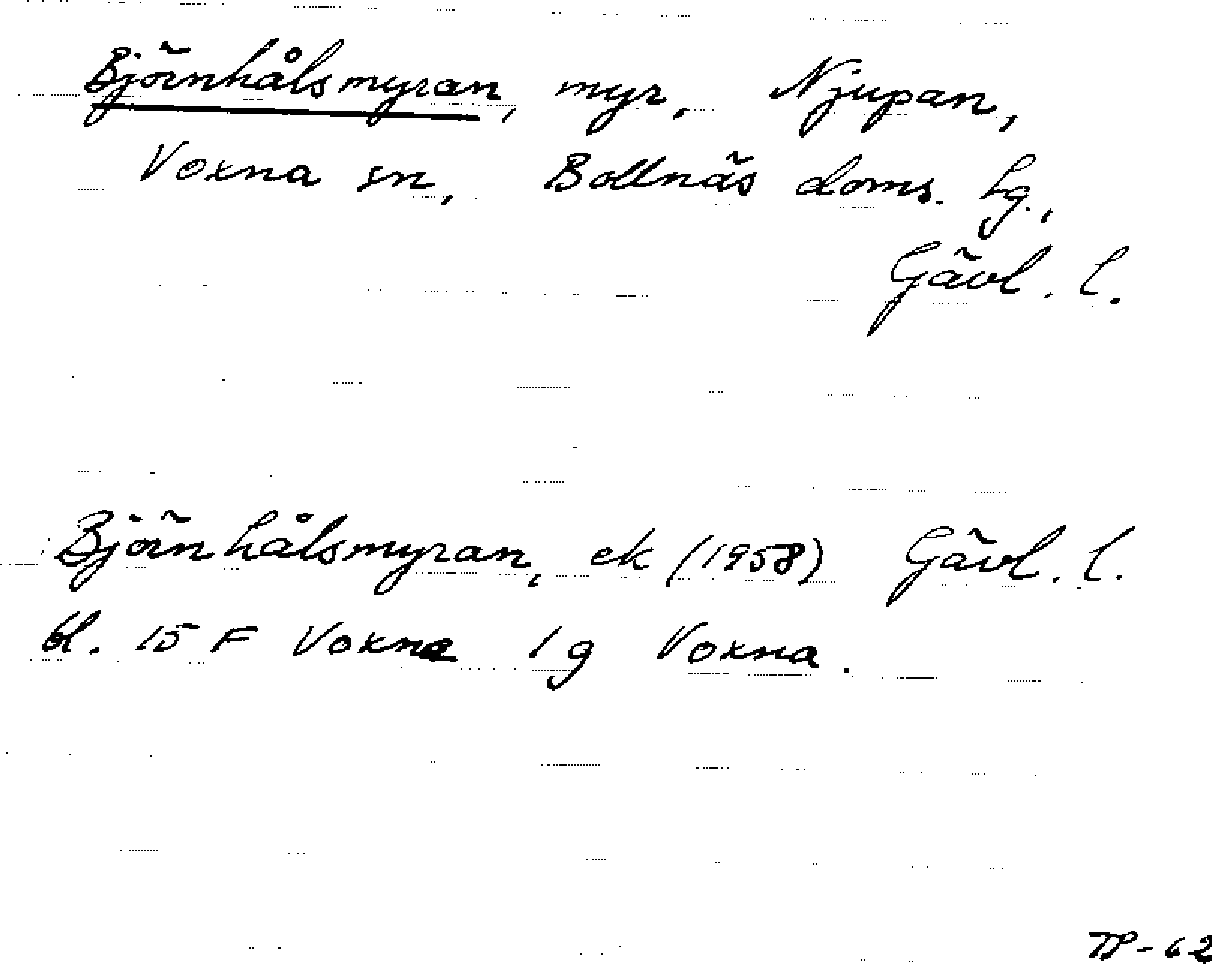 Björnhålsmyran, myr, Njupan,
Voxna sn, Bollnäs doms. hg.,
Gävl. l.
Björnhålsmyran, ek (1958) Gävl. l.
bl. 15 F Voxna 1 g Voxna.
TP-62